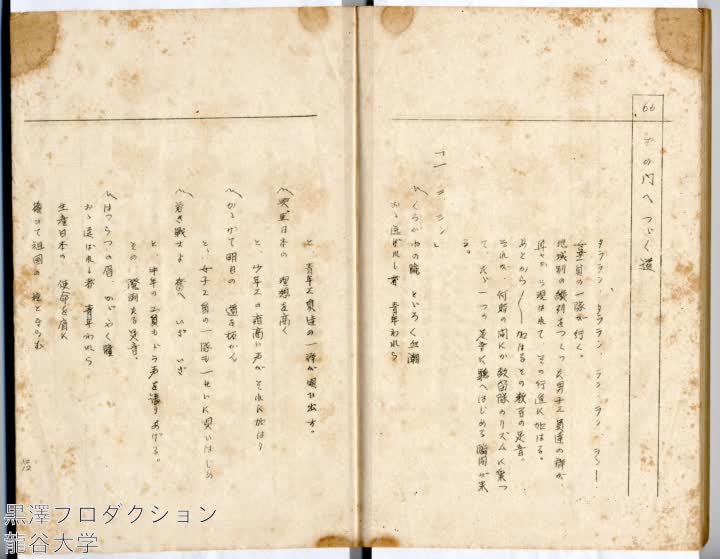 66
その門へつゞく道
タララン、タララン、ラン、ラン、ラン―
女子工員の一隊が行く。
地域別の隊列をつくった男子工員達の群が、
そこから現はれて その行進に加はる。
あとから〳〵加はるその数百の足音。
それが、何時の間にか鼓笛隊のリズムに乗つ
て、たゞ一つの足音に聴へはじめる瞬間が来
る。
「一、二、ン、ン」
〽くろがねの腕 とゞろく血潮
おゝ選ばれし者 青年われら
と、青年工員達の一群が唄ひ出す。
〽興亜日本の 理想を高く
と、少年工の疳高い声が それに加はり
〽かゝげて明日の 道を拓かん
と、女子工員の一隊も一せいに唄いはじめ
〽若き戦士よ 起て いざ いざ
と、中年の工員もドラ声を張りあげる。
その 溌剌たる足音。
〽はつらつの眉 かゞやく瞳
おゝ選ばれし者 青年われら
生産日本の 使命を肩に
捧げて祖国の 楯とならむ
黒澤プロダクション
龍谷大学